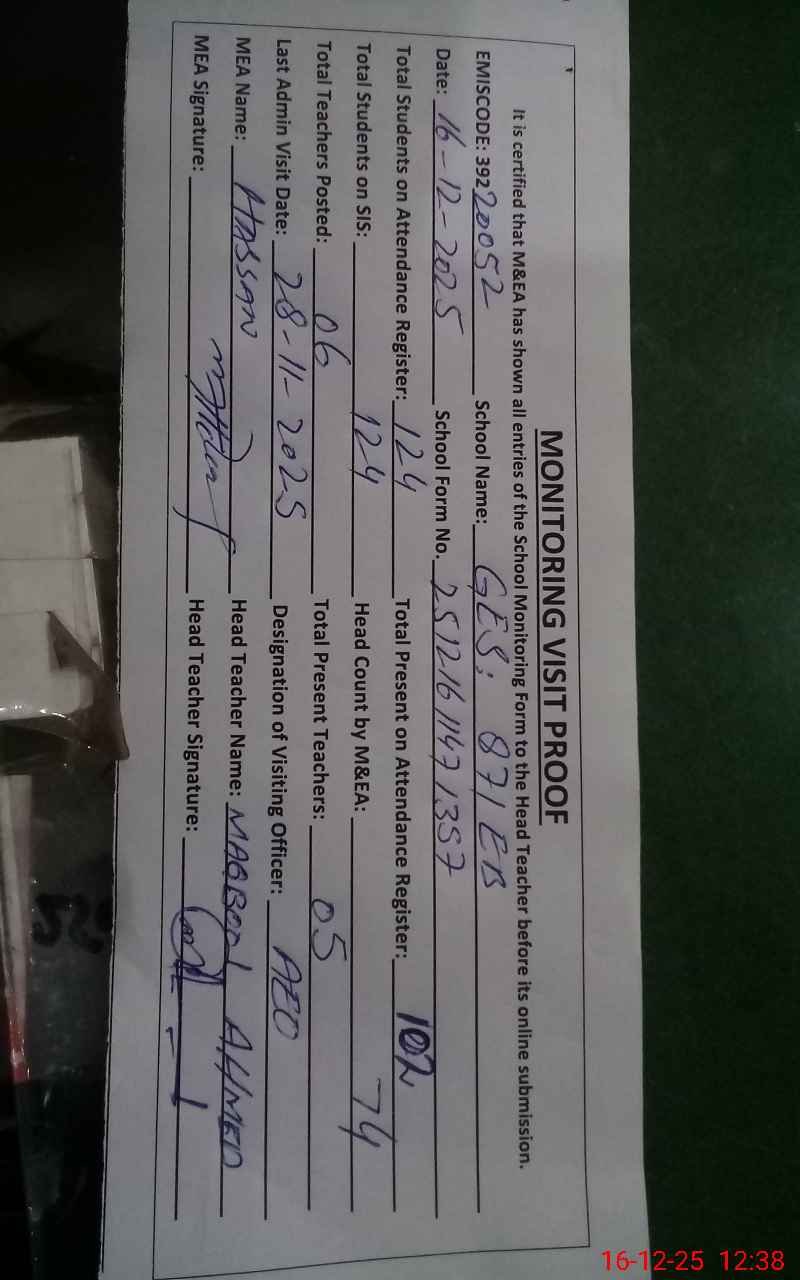 MONITORING VISIT PROOF
It is certified that M&EA has shown all entries of the School Monitoring Form to the Head Teacher before its online submission.
EMISCODE: 39220052 School Name: GES: 871 EB
Date: 16-12-2025 School Form No. 25121611471357
Total Students on Attendance Register: 124 Total Present on Attendance Register: 102
Total Students on SIS: 124 Head Count by M&EA: 74
Total Teachers Posted: 06 Total Present Teachers: 05
Last Admin Visit Date: 28-11-2025 Designation of Visiting Officer: AEO
MEA Name: HASSAN Head Teacher Name: MAQBOOL AHMED
MEA Signature: Head Teacher Signature:
16-12-25 12:38